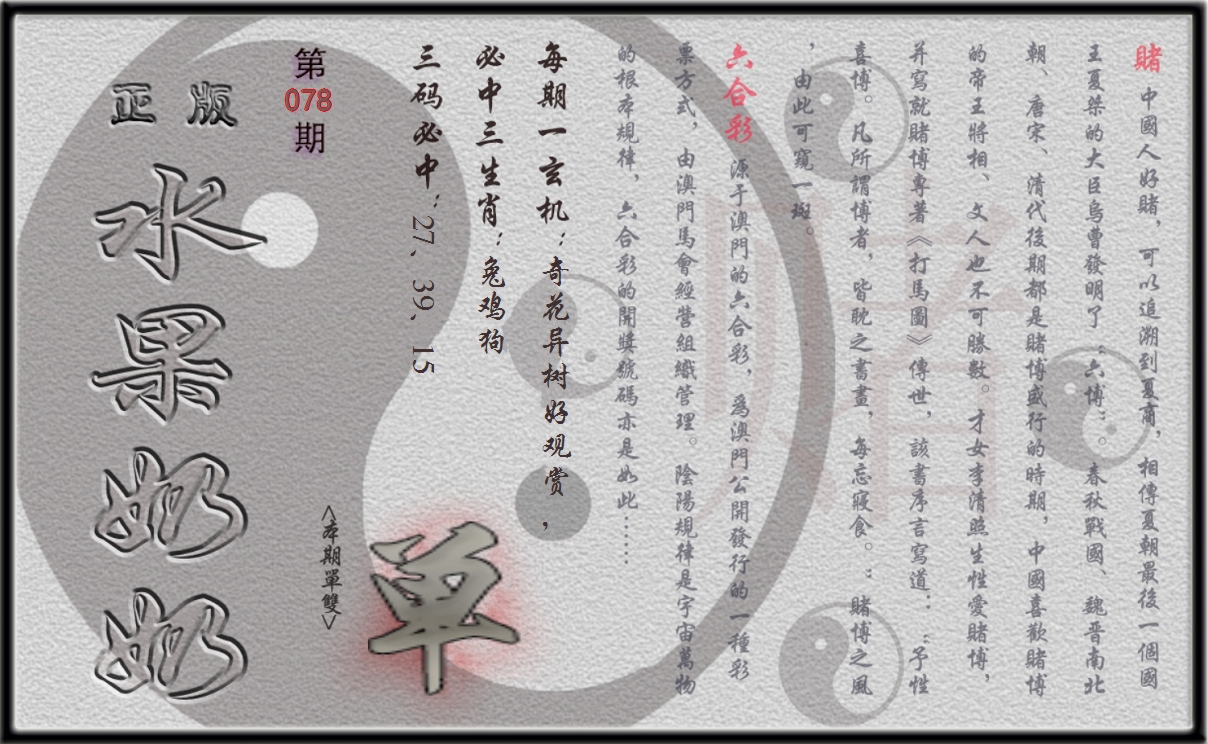 賭 中國人好賭，可以追溯到夏商，相傳夏朝最後一個國
王夏桀的大臣烏曹發明了“六博”。春秋戰國、魏晉南北
朝、唐宋、清代後期都是賭博盛行的時期，中國喜歡賭博
的帝王將相、文人也不可勝數。才女李清照生性愛賭博，
并寫就賭博專著《打馬圖》傳世，該書序言寫道：“予性
喜博。凡所謂博者，皆耽之書畫，每忘寢食。：賭博之風
，由此可窺一斑。
六合彩 源于澳門的六合彩，爲澳門公開發行的一種彩
票方式，由澳門馬會經營組織管理。陰陽規律是宇宙萬物
的根本規律，六合彩的開獎號碼亦是如此……
每期一玄机：奇花异树好观赏，
必中三生肖：兔鸡狗
三码必中：27、39、15
单
<本期單雙>
第
078
期
正版
水果奶奶
赌